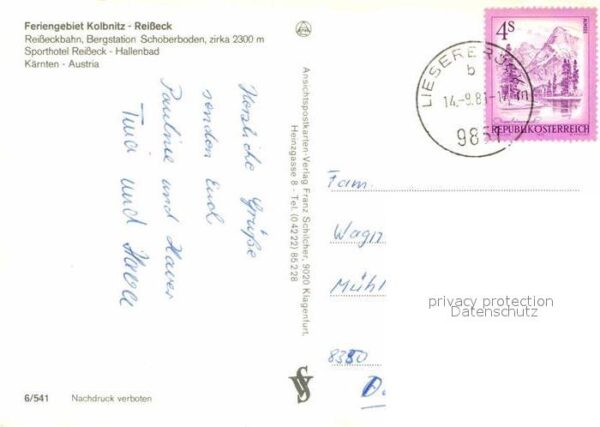 Feriengebiet Kolbnitz - Reißeck
Reißeckbahn, Bergstation Schoberboden, zirka 2300 m
Sporthotel Reißeck - Hallenbad
Kärnten - Austria
Herzliche Grüße
senden Euch
Pauline und Xaver
Tina und
Ansichtspostkarten-Verlag Franz Schilcher, 9020 Klagenfurt,
Heinzgasse 8 - Tel. (0 42 22) 85 2 28
4S
ALMSEE
REPUBLIK ÖSTERREICH
LIESERBRÜCKE
b
14.-9.81-1
9851
Fam.
Wag
Mühl
8380
D.
privacy protection
Datenschutz
6/541 Nachdruck verboten